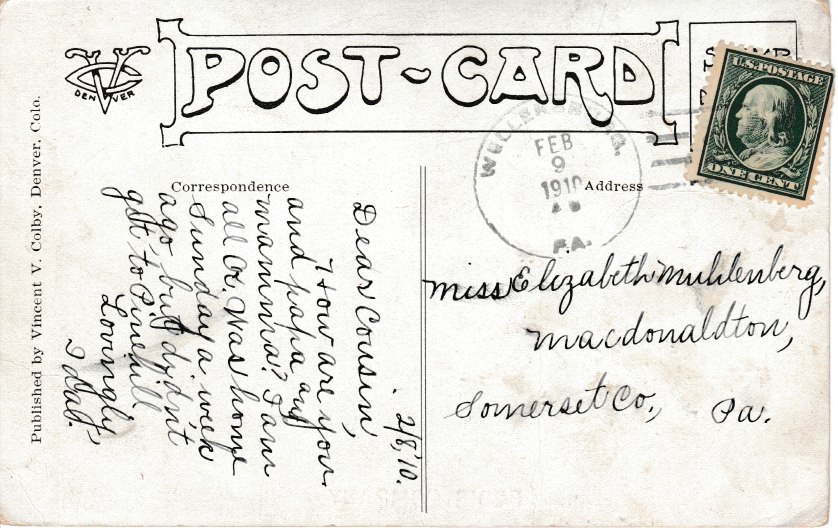 POST-CARD
DEN VER
Published by Vincent V. Colby, Denver, Colo.
Correspondence
Address
U.S. POSTAGE
ONE CENT
FEB
9
1910
PA.
2/8,'10.
Dear Cousin,
How are you
and papa and
mamma? I am
all O.K. Was home
Sunday a week
ago but didn't
get to Pinehill
Lovingly
Miss Elizabeth Muhlenberg,
Macdonaldton,
Somerset Co., Pa.